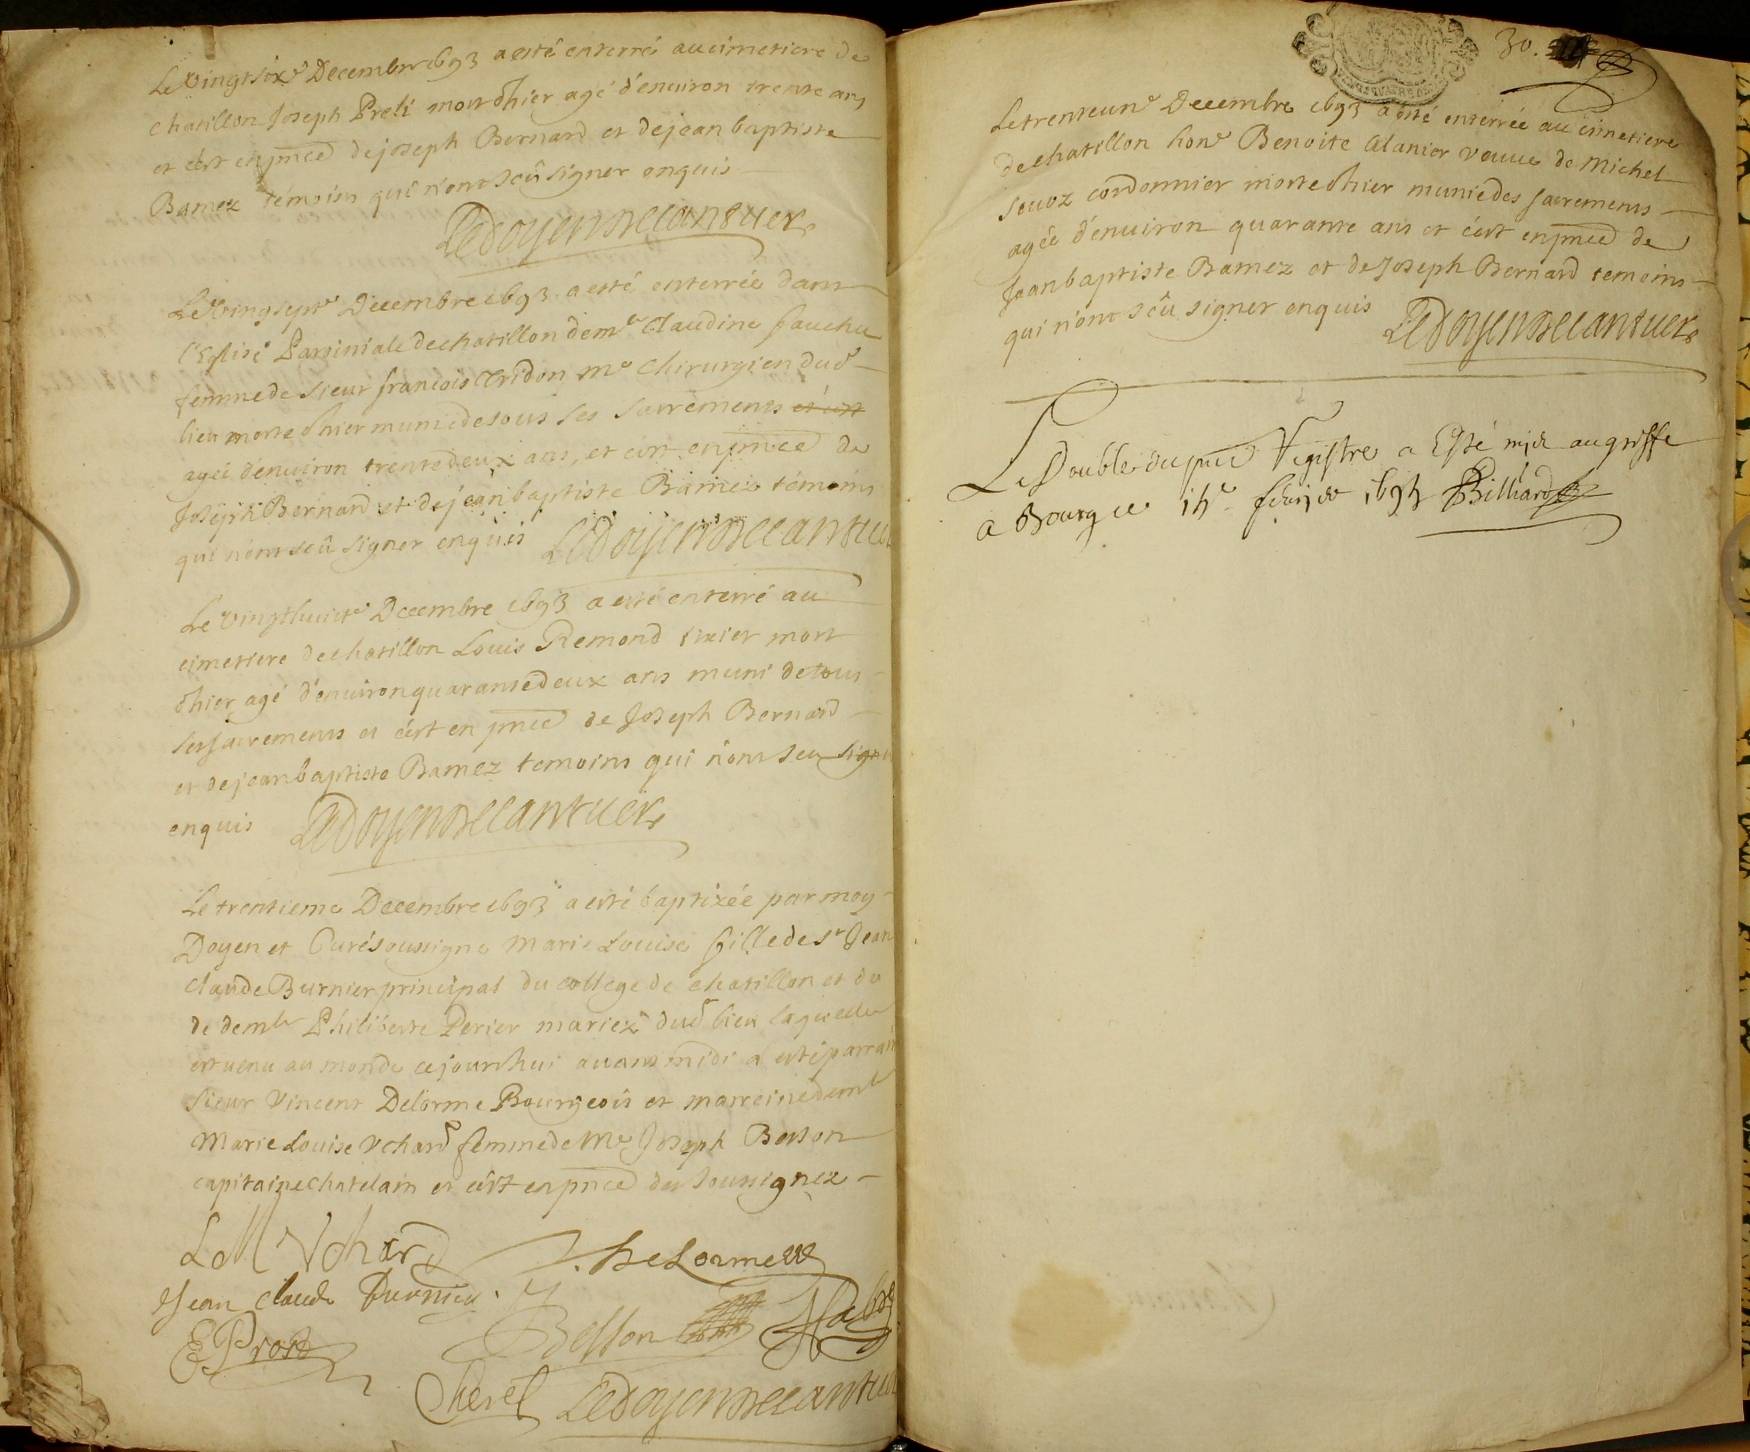 Le vingt six.e Decembre 1693 a esté enterré au cimetiere de
chatillon Joseph Preli mort d'hier agé d'environ trente ans
et c'est en pnce de joseph Bernard et de jean baptiste
Bamez témoins qui n'ont seû signer enquis
Ledoyen Decantuer
Le Vingt sept.e Decembre 1693 a esté enterrée dans
l'Eglise Parroissiale de chatillon dem.e Claudine
femme de sieur françois Tridon m.e Chirurgien dud
lieu morte d'hier munie de tous ses sacrements et c'est
agée d'environ trente deux ans, et c'est en pnce de
Joseph Bernard et de jean baptiste Bamez témoins
qui n'ont seû signer enquis Ledoyen Decantuer
Le vingt huict.e Decembre 1693 a esté enterré au
cimetiere de chatillon Louis Remond tixier mort
d'hier agé d'environ quarante deux ans muni de tous
ses sacrements et c'est en pnce de Joseph Bernard
et de jean baptiste Bamez temoins qui n'ont seu signer
enquis Ledoyen Decantuer
Le trentieme Decembre 1693 a esté baptizée par moy
Doyen et Curé soussigné Marie Louise fille de s.r Jean
Claude Burnier principal du college de chatillon et de
de dem.lle Philiberte Perier mariez dud lieu laquelle
est venu au monde ce jourd'hui avant midi a esté parrain
sieur Vincent Delorme Bourgeois et marreine dem.lle
Marie Louise Vchard femme de M.e Joseph Besson
capitaine chatelain et c'est en pnce des soussignez
L M Vchard V. DeLorme
Jean Claude Burnier
Besson
E Prost
Cherel Ledoyen Decantuer
30.
Le trente un.e Decembre 1693 a esté enterrée au cimetiere
de chatillon hon.e Benoite Alanier veuve de Michel
cordonnier morte d'hier munie des sacrements
agée d'environ quarante ans et c'est en pnce de
Jean baptiste Bamez et de Joseph Bernard temoins
qui n'ont seû signer enquis Ledoyen Decantuer
Le Double du pnt Registre a Esté mis au greffe
a Bourg ce febvrier 1694 Billiard